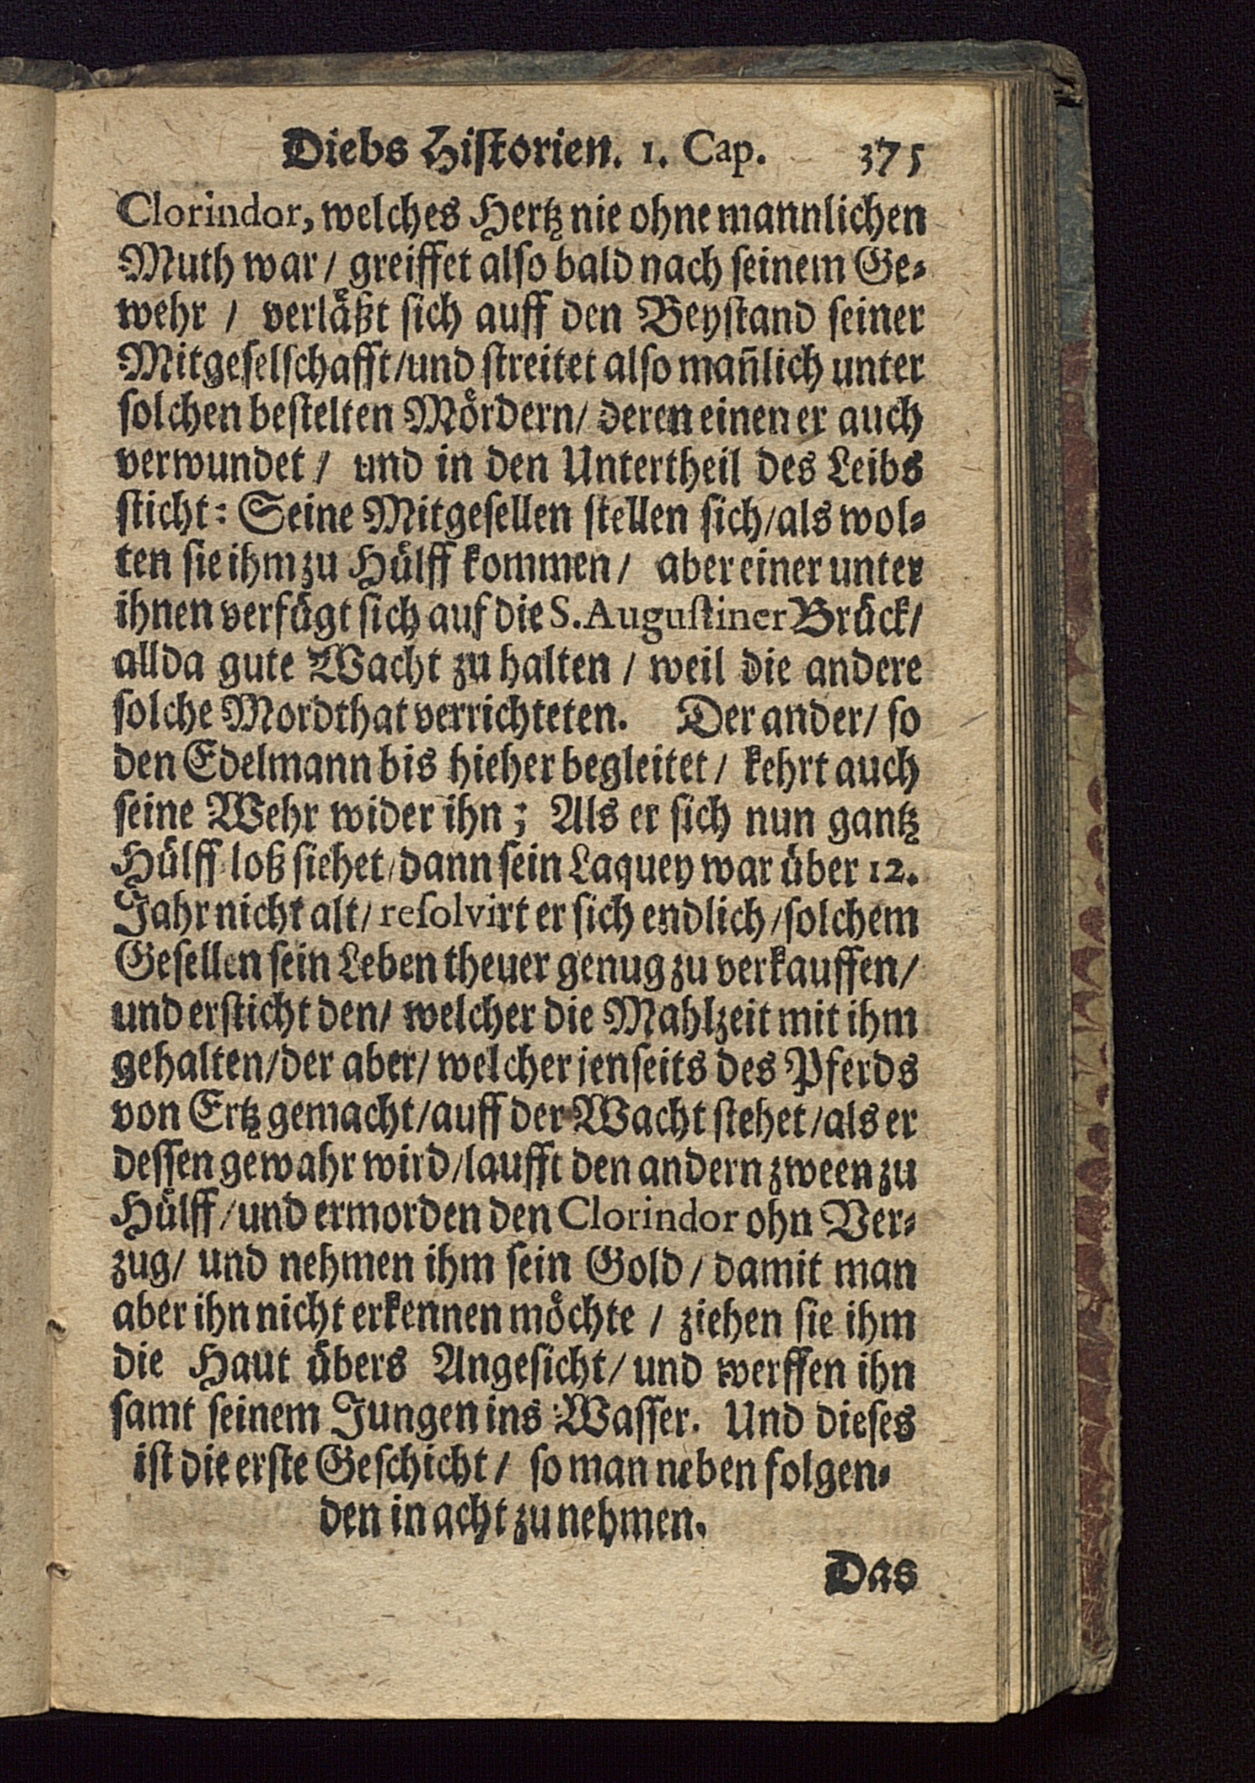 Diebs Historien. 1. Cap. 375
Clorindor, welches Hertz nie ohne mannlichen
Muth war / greiffet also bald nach seinem Ge-
wehr / verläßt sich auff den Beystand seiner
Mitgeselschafft / und streitet also mañlich unter
solchen bestelten Mördern / deren einen er auch
verwundet / und in den Untertheil des Leibs
sticht: Seine Mitgesellen stellen sich / als wol-
ten sie ihm zu Hülff kommen / aber einer unter
ihnen verfügt sich auf die S. Augustiner Brück /
allda gute Wacht zu halten / weil die andere
solche Mordthat verrichteten. Der ander / so
den Edelmann bis hieher begleitet / kehrt auch
seine Wehr wider ihn; Als er sich nun gantz
Hülff loß siehet / dann sein Laquey war über 12.
Jahr nicht alt / resolvirt er sich endlich / solchem
Gesellen sein Leben theuer genug zu verkauffen /
und ersticht den / welcher die Mahlzeit mit ihm
gehalten / der aber / welcher jenseits des Pferds
von Ertz gemacht / auff der Wacht stehet / als er
dessen gewahr wird / laufft den andern zween zu
Hülff / und ermorden den Clorindor ohn Ver-
zug / und nehmen ihm sein Gold / damit man
aber ihn nicht erkennen möchte / ziehen sie ihm
die Haut übers Angesicht / und werffen ihn
samt seinem Jungen ins Wasser. Und dieses
ist die erste Geschicht / so man neben folgen-
den in acht zu nehmen.
Das